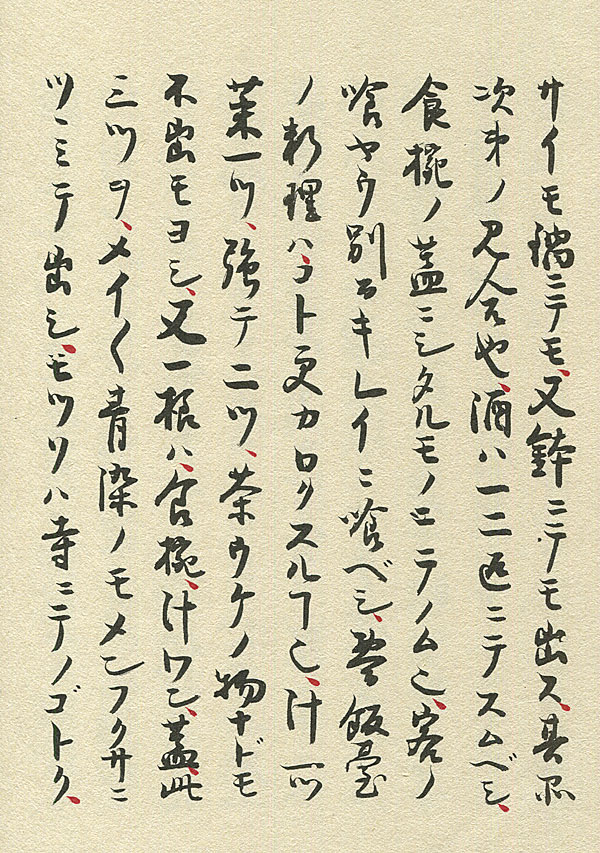 サイモ鍋ニテモ、又鉢ニテモ出ス、其所
次第ノ見合也、酒ハ一二返ニテスムベシ、
食椀ノ蓋ニシタルモノニテノム也、客ノ
喰ヤウ別而キレイニ喰ベシ、惣飯臺
ノ料理ハ、コト更カロクスルヿ也、汁一ツ
菜一ツ、強テ二ツ、茶ウケノ物ナドモ
不出モヨシ、又一様ハ、食椀、汁ワン、蓋、此
三ツヲ、メイ〱青染ノモメンフクサニ
ツヽミテ出シ、モツソハ寺ニテノゴトク、